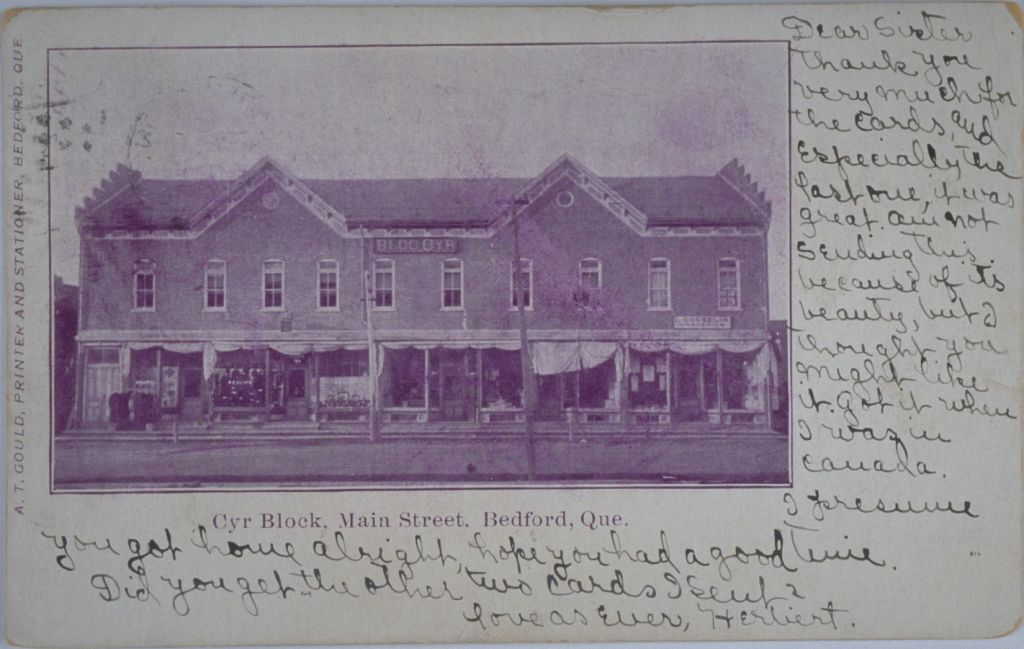 A. T. GOULD, PRINTER AND STATIONER, BEDFORD, QUE.
BLOC CYR
Cyr Block, Main Street, Bedford, Que.
Dear Sister
Thank you
very much for
the cards, and
especially the
last one, it was
great. am not
sending this
because of its
beauty, but I
thought you
might like
it. got it when
I was in
Canada.
I presume
you got home alright, hope you had a good time.
Did you get the other two cards I sent?
love as ever, Herbert.